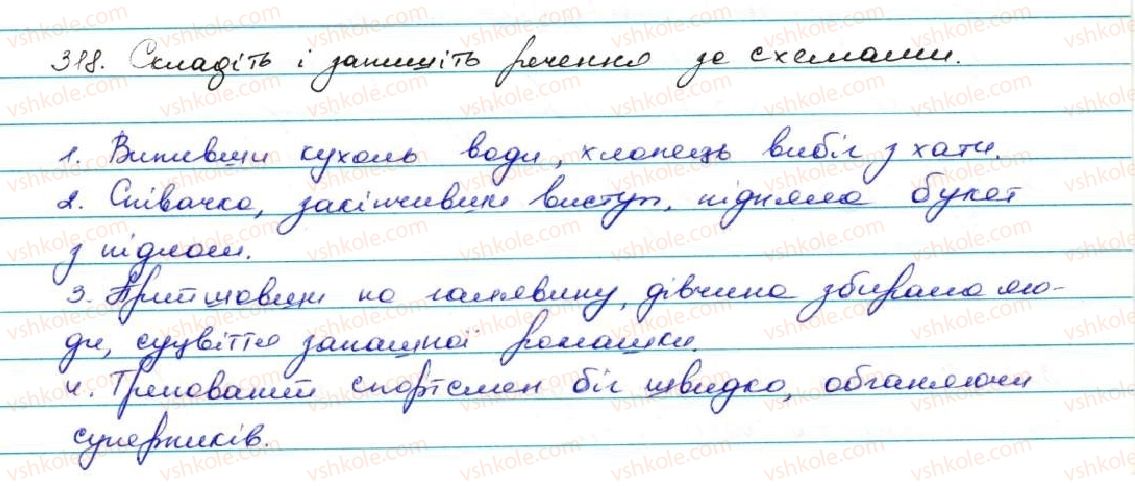 318. Складіть і запишіть речення за схемами.
1. Випивши кухоль води, хлопець вибіг з хати.
2. Співачка, закінчивши виступ, підняла букет
з підлоги.
3. Прийшовши на галявину, дівчина збирала яго-
ди, суцвіття запашної ромашки.
4. Тренований спортсмен біг швидко, обганяючи
суперників.